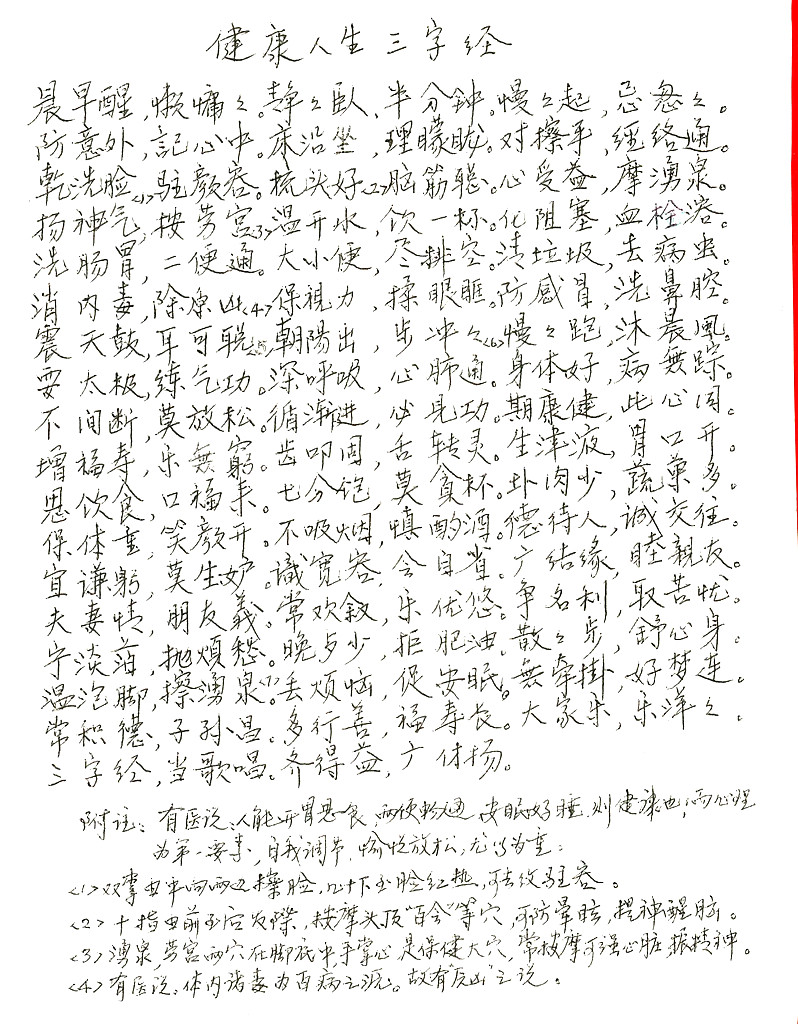 健康人生三字经
晨早醒,懒慵々。静々臥,半分钟。慢々起,忌怱々。
防意外,記心中。床沿坐,理矇眬。对擦手,经络通。
乾洗脸<1>,驻颜容。梳头好<2>,脑筋聪。心受益,摩湧泉。
扬神气,按劳宫<3>。温开水,饮一杯。化阻塞,血栓溶。
洗肠胃,二便通。大小便,尽排空。清垃圾,去病虫。
消内毒,除原凶<4>。保视力,揉眼眶。防感冒,洗鼻腔。
震天鼓,耳可聪<5>。朝陽出,步冲々<6>。慢々跑,沐晨風。
耍太极,练气功。深呼吸,心肺通。身体好,病無踪。
不间断,莫放松。循渐进,必見功。期康健,此心同。
增福寿,乐無窮。齿叩固,舌转灵。生津液,胃口开。
思饮食,口福来。七分饱,莫貪杯。卟肉少,蔬菜多。
保体重,笑颜开。不吸烟,慎酌酒。德待人,誠交往。
宜谦躬,莫生妒。識宽容,会自省。广结缘,睦親友。
夫妻情,朋友義。常欢叙,乐优悠。争名利,取苦忧。
宁淡泊,抛煩愁。晚歺少,拒肥油。散々步,舒心身。
温泡脚,擦湧泉<7>。丢煩恼,促安眠。無牵掛,好梦连。
常积德,子孙昌。多行善,福寿长。大家乐,乐洋々.
三字经,当歌唱。齐得益,广传扬。
附注:有医说:人能开胃思食,两便畅通,安眠好睡,则健康也,而心理
为第一要素,自我调节,愉悦放松,尤当为重:
<1>双掌由中向两边擦脸,几十下至脸红热,可去纹驻容。
<2>十指由前至后发際,按摩头顶"百会"等穴,可防晕眩,提神醒脑。
<3>湧泉,劳宫两穴在脚底中手掌心是保健大穴,常按摩可强心脏,振精神。
<4>有医说:体内诸毒为百病之源。故有"原凶"之说。